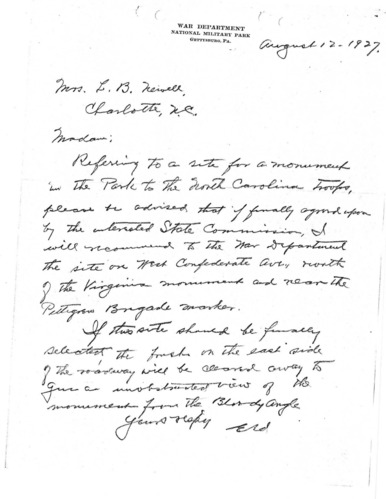 WAR DEPARTMENT
NATIONAL MILITARY PARK
GETTYSBURG, PA.
August 12 - 1927.
Mrs. L. B. Newell,
Charlotte, N.C.
Madam:
Referring to a site for a monument
in the Park to the North Carolina Troops,
please be advised that if finally agreed upon
by the interested State Commission, I
will recommend to the War Department
the site on West Confederate Ave., north
of the Virginia monument and near the
Pettigrew Brigade marker.
If this site should be finally
selected the brush on the east side
of the roadway will be cleared away to
give a unobstructed view of the
monument from the Bloody Angle
Yours respy